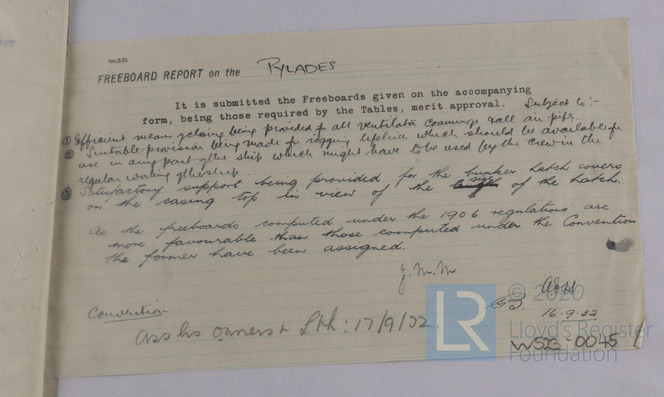 FREEBOARD REPORT on the PYLADES
It is submitted the Freeboards given on the accompanying
form, being those required by the Tables, merit approval. Subject to:-
① Efficient means of closing being provided for all ventilator coamings & all air pipes.
② Suitable provision being made for rigging lifeline which should be available for
use in any part of the ship which might have to be used by the crew in the
regular working of the ship
③ Satisfactory support being provided for the bunker hatch covers
on the casing top in view of the size of the hatch.
As the freeboards computed under the 1906 regulations are
more favourable than those computed under the Convention
the former have been assigned.
J.M.M
16.9.32
Convention
owners & 17/9/32
© 2020
LR
Lloyd's Register
Foundation
W523-0045